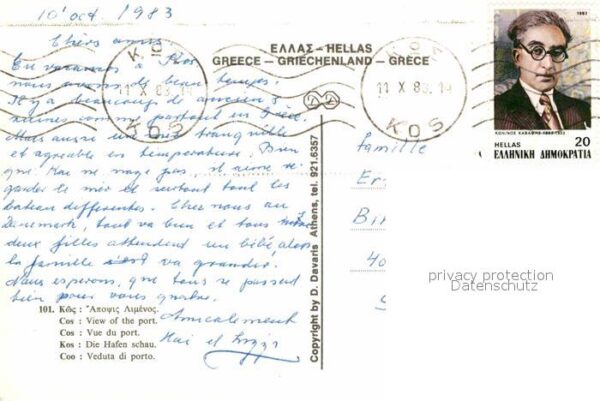 10 oct 1983
Chers amis
En vacances à Kos
nous avons de beau temps.
Il y a beaucoup de anciens
ruines comme partout en Grèce.
Mais aussi une mer tranquille
et agréable en temperature. Bien
que Kai ne nage pas, il aime re-
garder le mer et surtout tout les
bateau differentes. Chez nous au
Danemark, tout va bien et tous
deux filles attendent un bébé, alors
la famille va grandir.
Nous esperons, que tous se passent
bien pour vous
Amicalement
Kai et
101. Κῶς : Ἄποψις Λιμένος.
Cos : View of the port.
Cos : Vue du port.
Kos : Die Hafen schau.
Coo : Veduta di porto.
ΕΛΛΑΣ – HELLAS
GREECE – GRIECHENLAND – GRÈCE
Copyright by D. Davaris Athens, tel. 921.6357
ΚΩΣ
11 X 83.19
KOS
ΚΩΣ
11 X 83.19
KOS
1983
ΚΩΝ/ΝΟΣ ΚΑΒΑΦΗΣ 1863-1933
HELLAS 20
ΕΛΛΗΝΙΚΗ ΔΗΜΟΚΡΑΤΙΑ
Famille
Er
Bi
40
privacy protection
Datenschutz